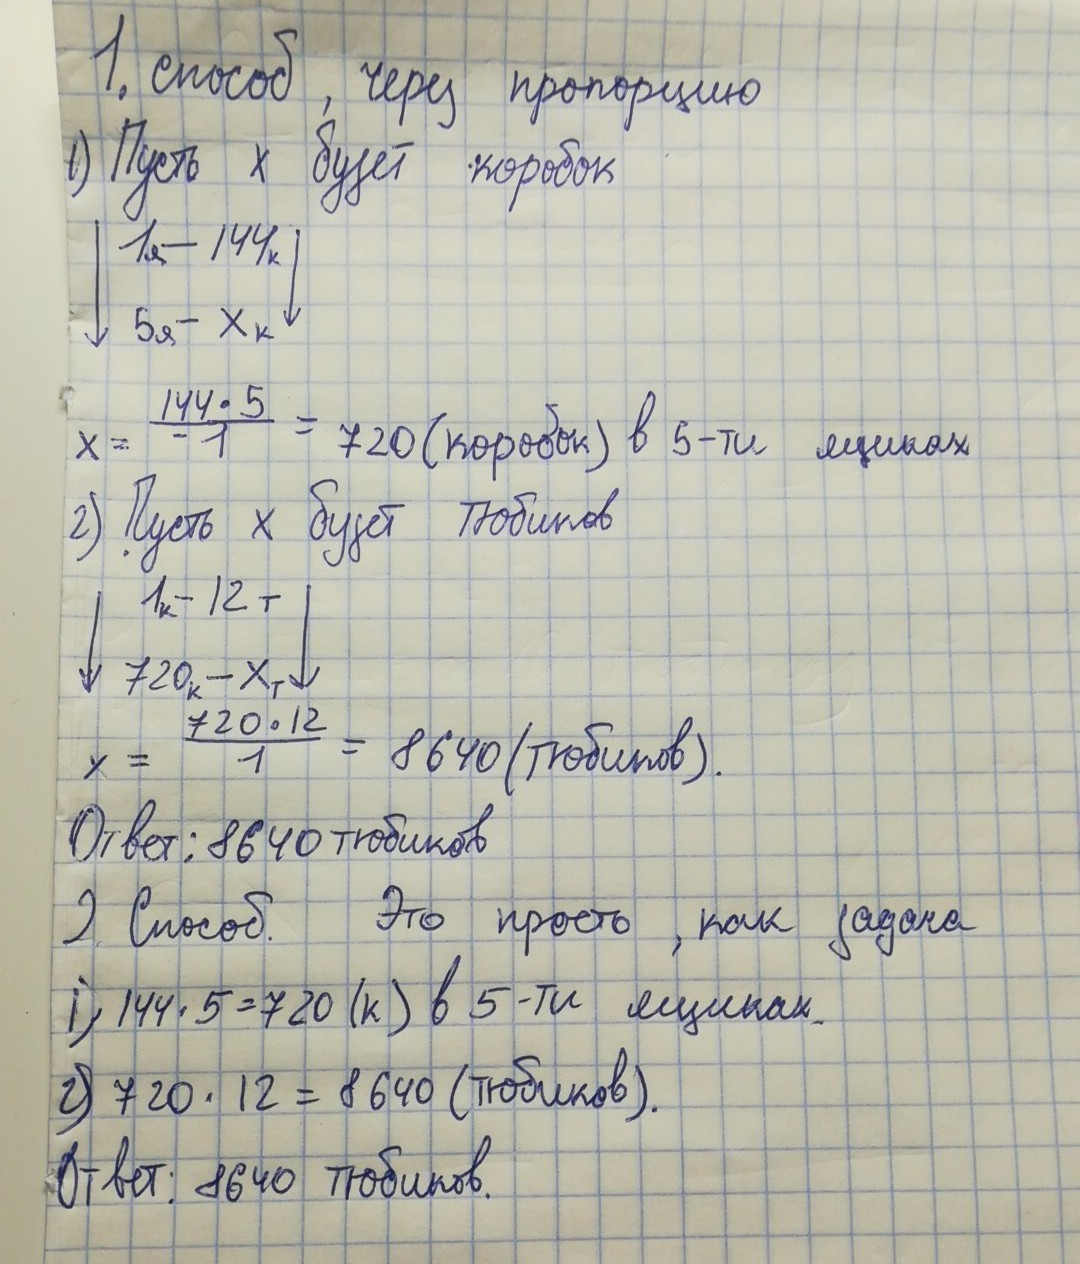 1. способ, через пропорцию
1) Пусть х будет коробок
1я – 144к
5я – Хк
х = 144·5 / 1 = 720 (коробок) в 5-ти ящиках
2) Пусть х будет тюбиков
1к – 12т
720к – Хт
х = 720·12 / 1 = 8640 (тюбиков).
Ответ: 8640 тюбиков
2. Способ. Это просто, как задача
1) 144·5=720 (к) в 5-ти ящиках.
2) 720·12 = 8640 (тюбиков).
Ответ: 8640 тюбиков.